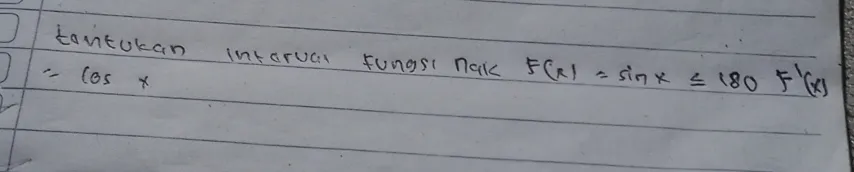 tantukan interval fungsi naik F(x) = sin x ≤ 180 F'(x)
= cos x